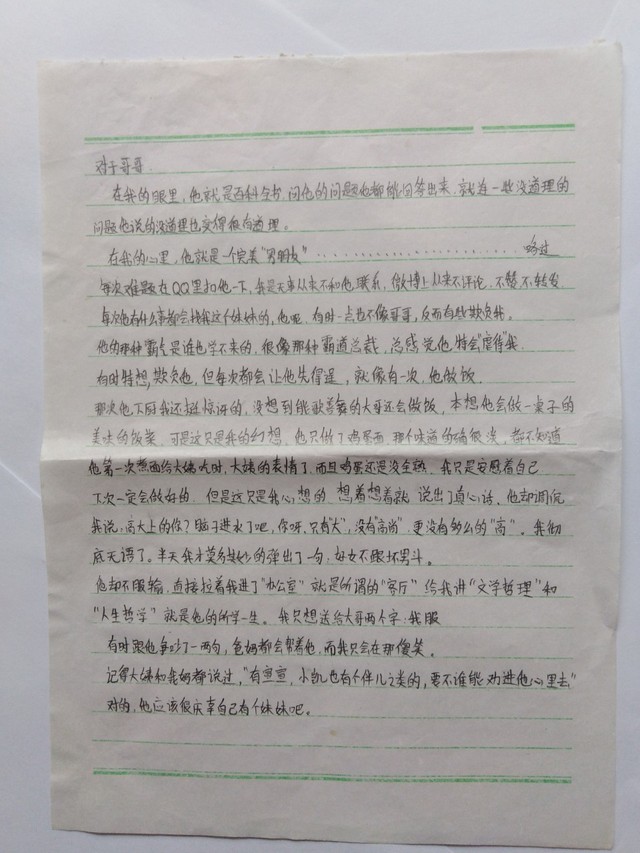 对于哥哥
在我的眼里，他就是百科全书，问他的问题他都能回答出来，就连一些没道理的
问题他说的没道理也变得很有道理。
在我的心里，他就是一个完美"男朋友"………………………略过
每次难题在QQ里扣他一下，我是无事从来不和他联系，微博上从来不评论，不赞，不转发
每次他有什么事都会找我这个妹妹的，他呢，有时一点也不像哥哥，反而有些欺负我。
他的那种霸气是谁也学不来的，很像那种霸道总裁，总感觉他特会"虐待"我
有时特想，欺负他，但每次都会让他先得逞，就像有一次，他做饭
那次他下厨我还挺惊讶的，没想到能歌善舞的大哥还会做饭，本想他会做一桌子的
美味的饭菜，可是这只是我的幻想，他只做了鸡蛋面，那个味道的确很淡，都不知道
他第一次煮面给大姨吃时，大姨的表情了，而且鸡蛋还是没全熟，我只是安慰着自己
下次一定会做好的，但是这只是我心想的，想着想着就说出了真心话，他却调侃
我说，高大上的你？脑子进水了吧，你呀，只有"大"，没有"高尚"，更没有多么的"高"。我彻
底无语了。半天我才莫名其妙的弹出了一句，好女不跟坏男斗。
他却不服输，直接拉着我进了"办公室"就是所谓的"客厅"给我讲"文学哲理"和
"人生哲学"就是他的所学一生。我只想送给大哥两个字：我服
有时跟他争吵了一两句，爸妈都会帮着他，而我只会在那傻笑。
记得大姨和我妈都说过，"有宣宣，小凯也有个伴儿之类的，要不谁能劝进他心里去"
对的，他应该很庆幸自己有个妹妹吧。